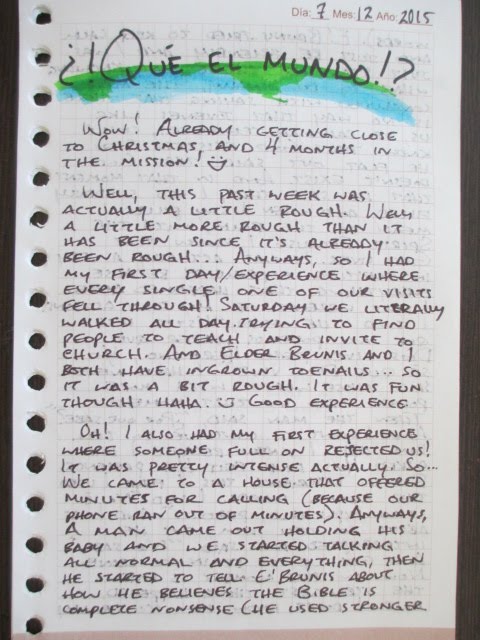 Día: 7 Mes: 12 Año: 2015
¿!QUÉ EL MUNDO!?
WOW! ALREADY GETTING CLOSE
TO CHRISTMAS AND 4 MONTHS IN
THE MISSION!
WELL, THIS PAST WEEK WAS
ACTUALLY A LITTLE ROUGH. WELL
A LITTLE MORE ROUGH THAN IT
HAS BEEN SINCE IT'S ALREADY
BEEN ROUGH... ANYWAYS, SO I HAD
MY FIRST DAY/EXPERIENCE WHERE
EVERY SINGLE ONE OF OUR VISITS
FELL THROUGH! SATURDAY WE LITERALLY
WALKED ALL DAY TRYING TO FIND
PEOPLE TO TEACH AND INVITE TO
CHURCH. AND ELDER BRUNIS AND I
BOTH HAVE INGROWN TOENAILS... SO
IT WAS A BIT ROUGH. IT WAS FUN
THOUGH HAHA. GOOD EXPERIENCE
OH! I ALSO HAD MY FIRST EXPERIENCE
WHERE SOMEONE FULL ON REJECTED US!
IT WAS PRETTY INTENSE ACTUALLY. SO...
WE CAME TO A HOUSE THAT OFFERED
MINUTES FOR CALLING (BECAUSE OUR
PHONE RAN OUT OF MINUTES). ANYWAYS,
A MAN CAME OUT HOLDING HIS
BABY AND WE STARTED TALKING
ALL NORMAL AND EVERYTHING, THEN
HE STARTED TO TELL E'BRUNIS ABOUT
HOW HE BELIEVES THE BIBLE IS
COMPLETE NONSENSE (HE USED STRONGER